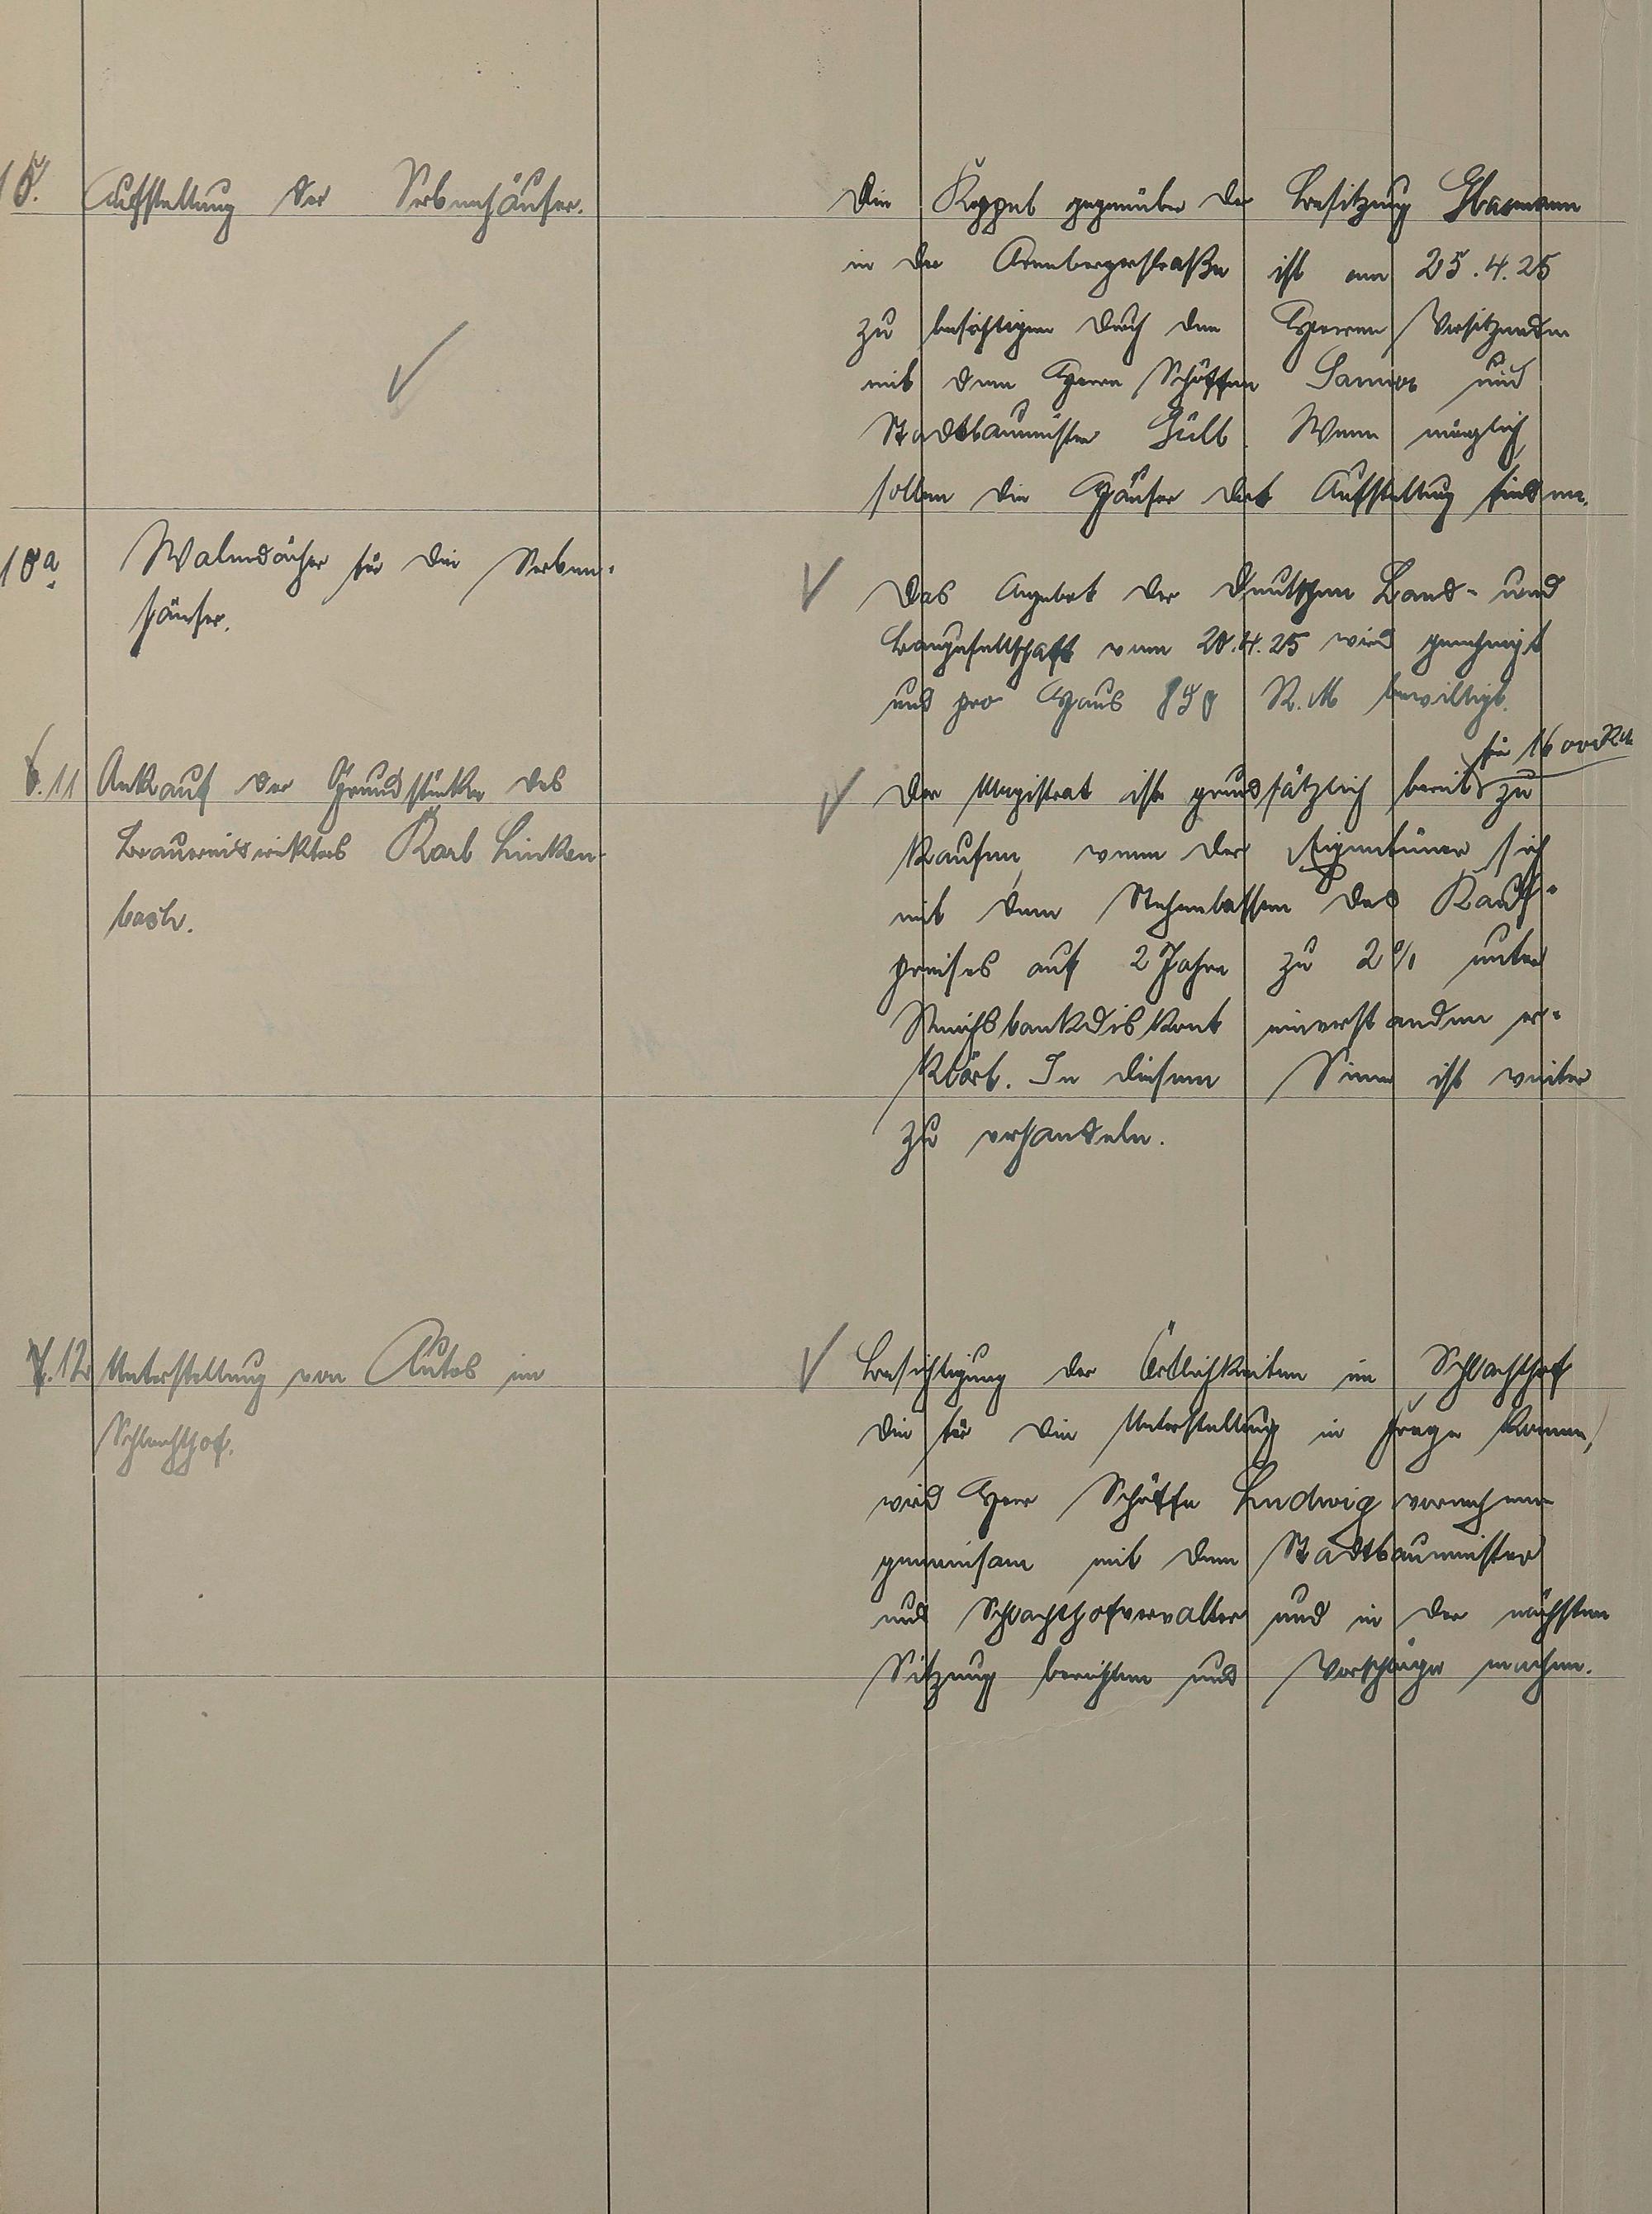 10. Aufstellung der Serbenhäuser.
Die Koppel gegenüber der Besitzung Ebermann
in der Arenbergerstraße ist am 25.4.25
zu besichtigen durch den Herren Vorsitzenden
mit dem Herrn Schöffen und
Stadtbaumeister Gült. Wenn möglich,
sollen die Häuser dort Aufstellung finden.
10a. Walmdächer für die Serben-
häuser.
Das Angebot der Deutschen Land- und
Baugesellschaft vom 20.4.25 wird genehmigt
und pro Haus 850 R.M bewilligt.
6.11 Ankauf der Grundstücke des
Brauereidirektors Karl Linken-
bach.
für 16000 RM
Der Magistrat ist grundsätzlich bereit zu
kaufen, wenn der Eigentümer sich
mit dem Stehenlassen des Kauf-
preises auf 2 Jahre zu 2% unter
Reichsbankdiskont einverstanden er-
klärt. In diesem Sinne ist weiter
zu verhandeln.
7.12 Unterstellung von Autos im
Schlachthof.
Besichtigung der Örtlichkeiten im Schlachthof
die für die Unterstellung in Frage kommen,
wird Herr Schöffe Ludwig vornehmen
gemeinsam mit dem Stadtbaumeister
und Schlachthofverwalter und in der nächsten
Sitzung berichten und Vorschläge machen.